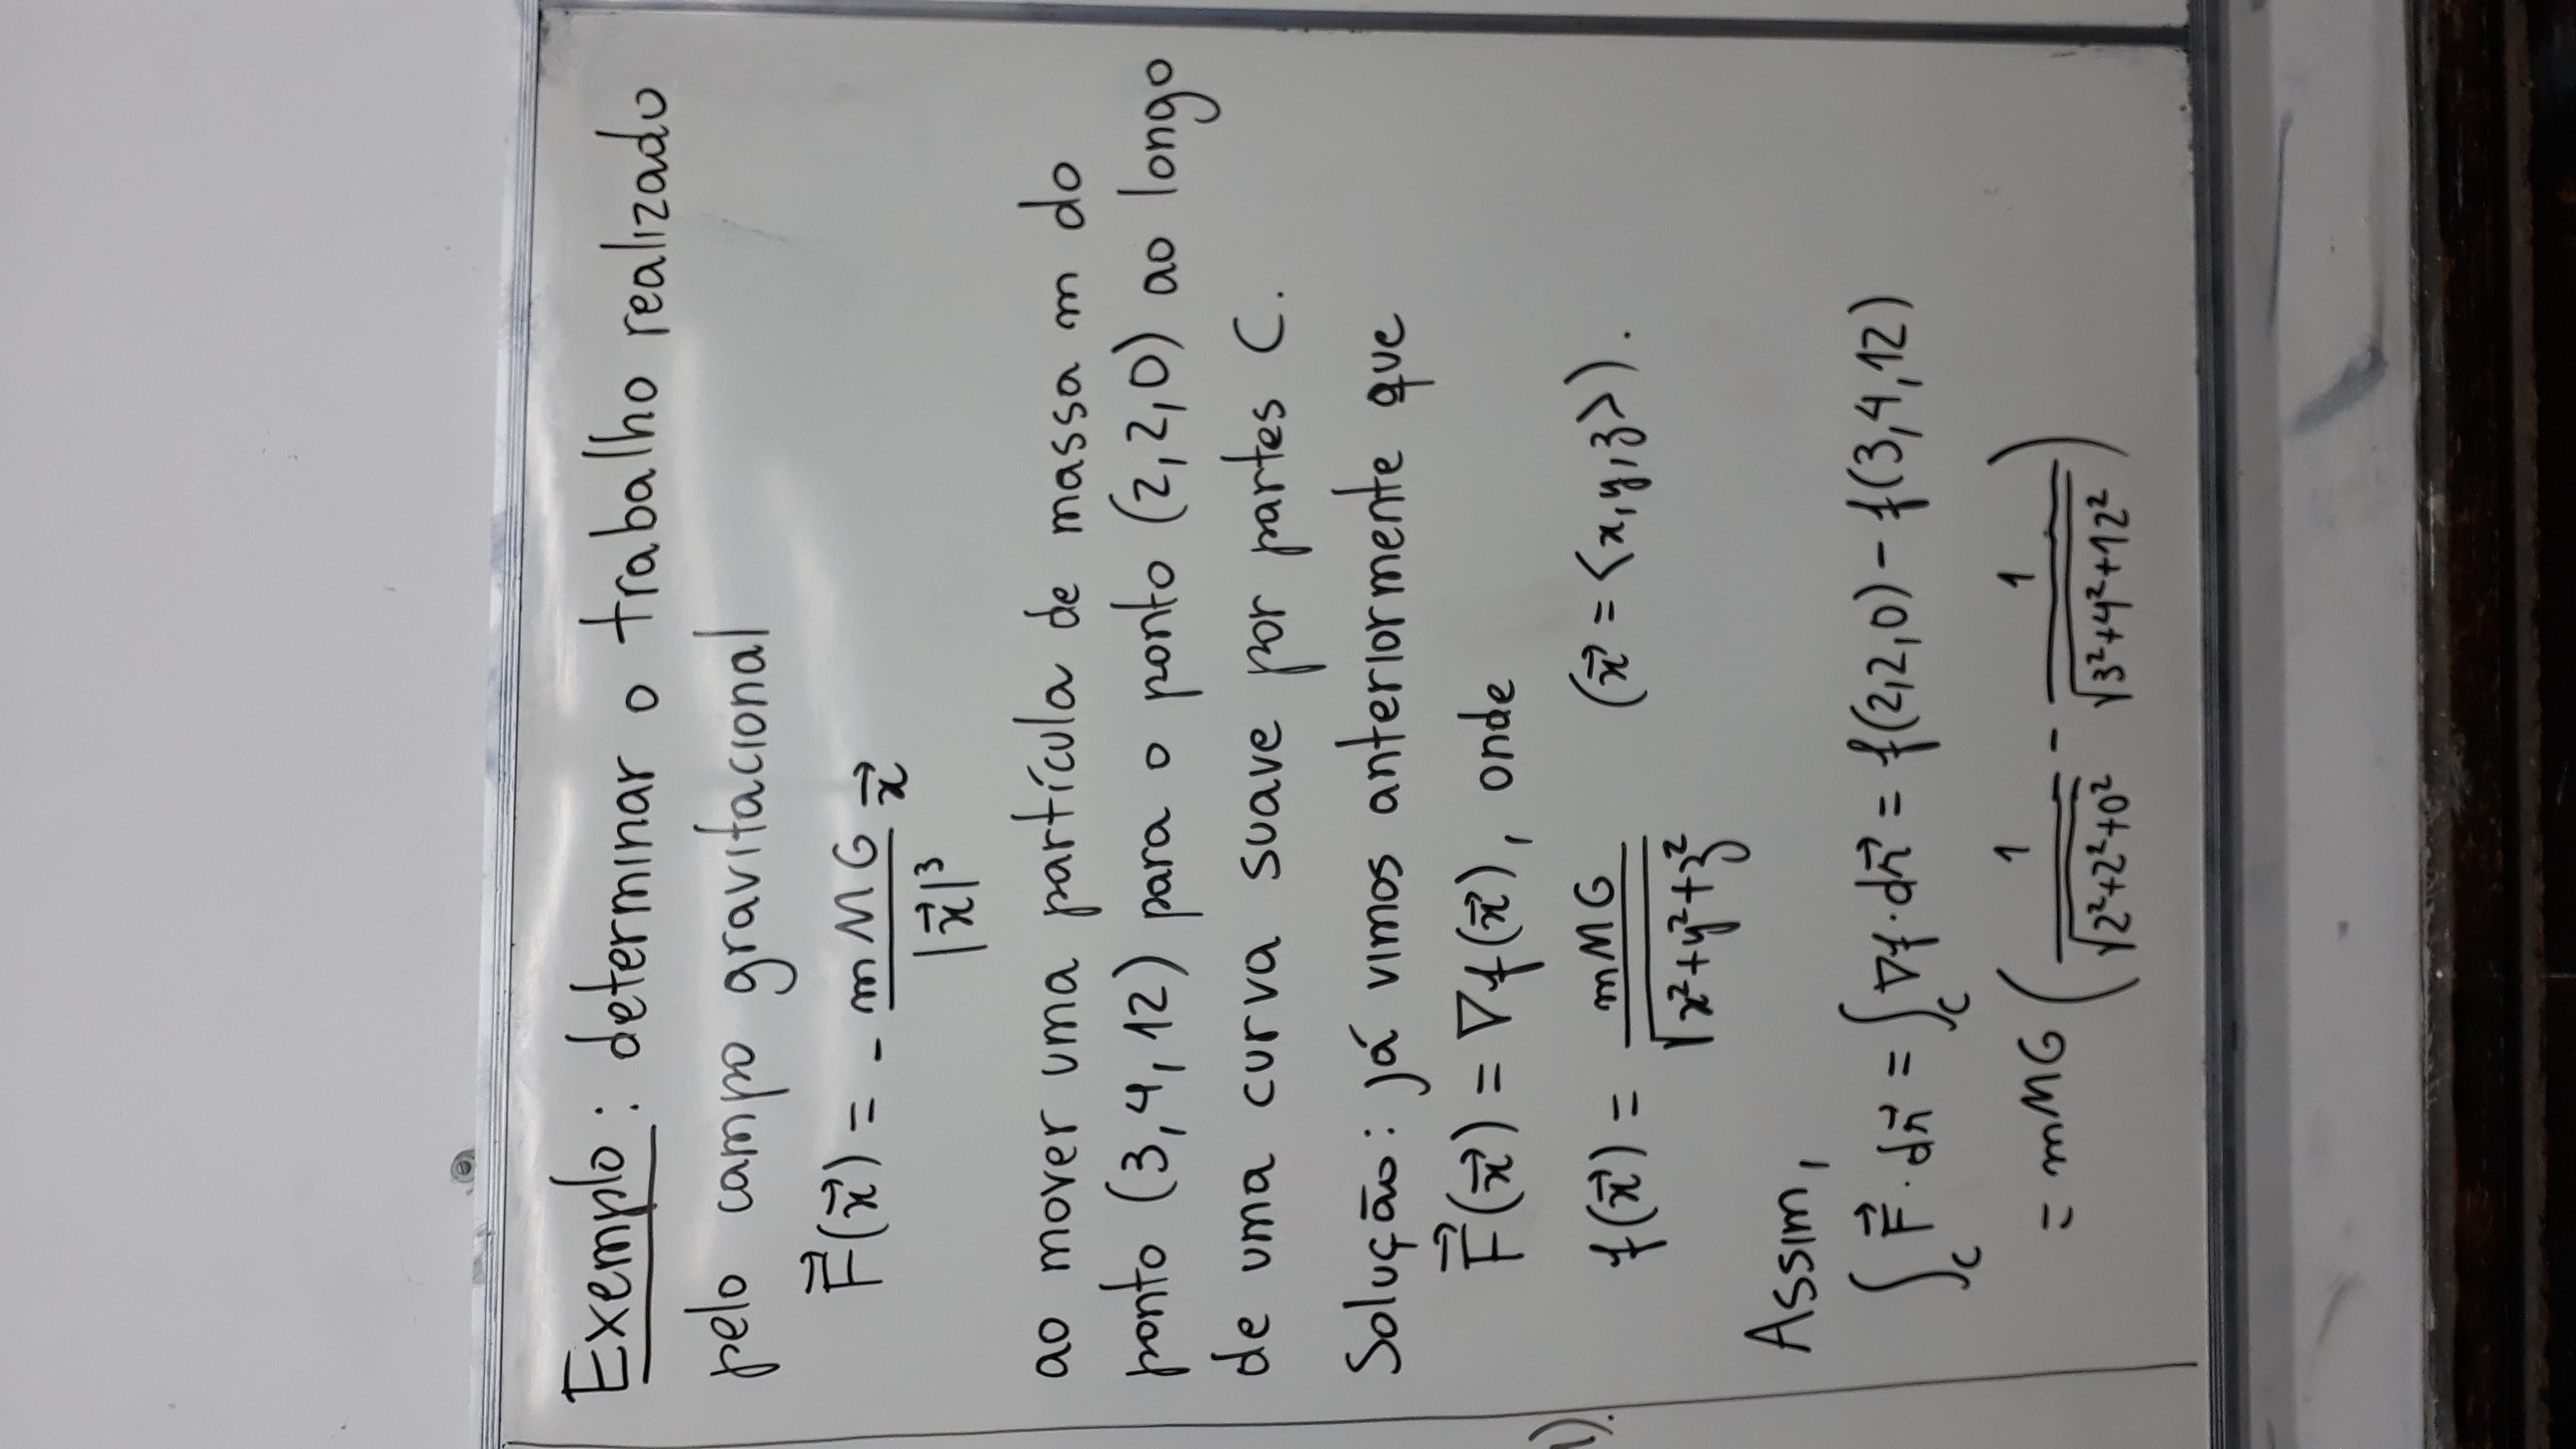 Exemplo: determinar o trabalho realizado
pelo campo gravitacional
F⃗(x⃗) = - mMG/|x⃗|³ x⃗
ao mover uma partícula de massa m do
ponto (3,4,12) para o ponto (2,2,0) ao longo
de uma curva suave por partes C.
Solução: já vimos anteriormente que
F⃗(x⃗) = ∇f(x⃗), onde
1).
f(x⃗) = mMG/√(x²+y²+z²) (x⃗ = <x,y,z>).
Assim,
∫_C F⃗·dr⃗ = ∫_C ∇f·dr⃗ = f(2,2,0) - f(3,4,12)
= mMG (1/√(2²+2²+0²) - 1/√(3²+4²+12²))